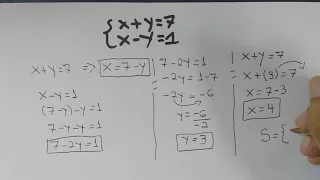 {x+y=7
x-y=1
x+y=7 => x=7-y
x-y=1
(7-y)-y=1
7-y-y=1
7-2y=1
7-2y=1
-2y=1-7
-2y=-6
y=-6/-2
y=3
x+y=7
x+(3)=7
x=7-3
x=4
S={